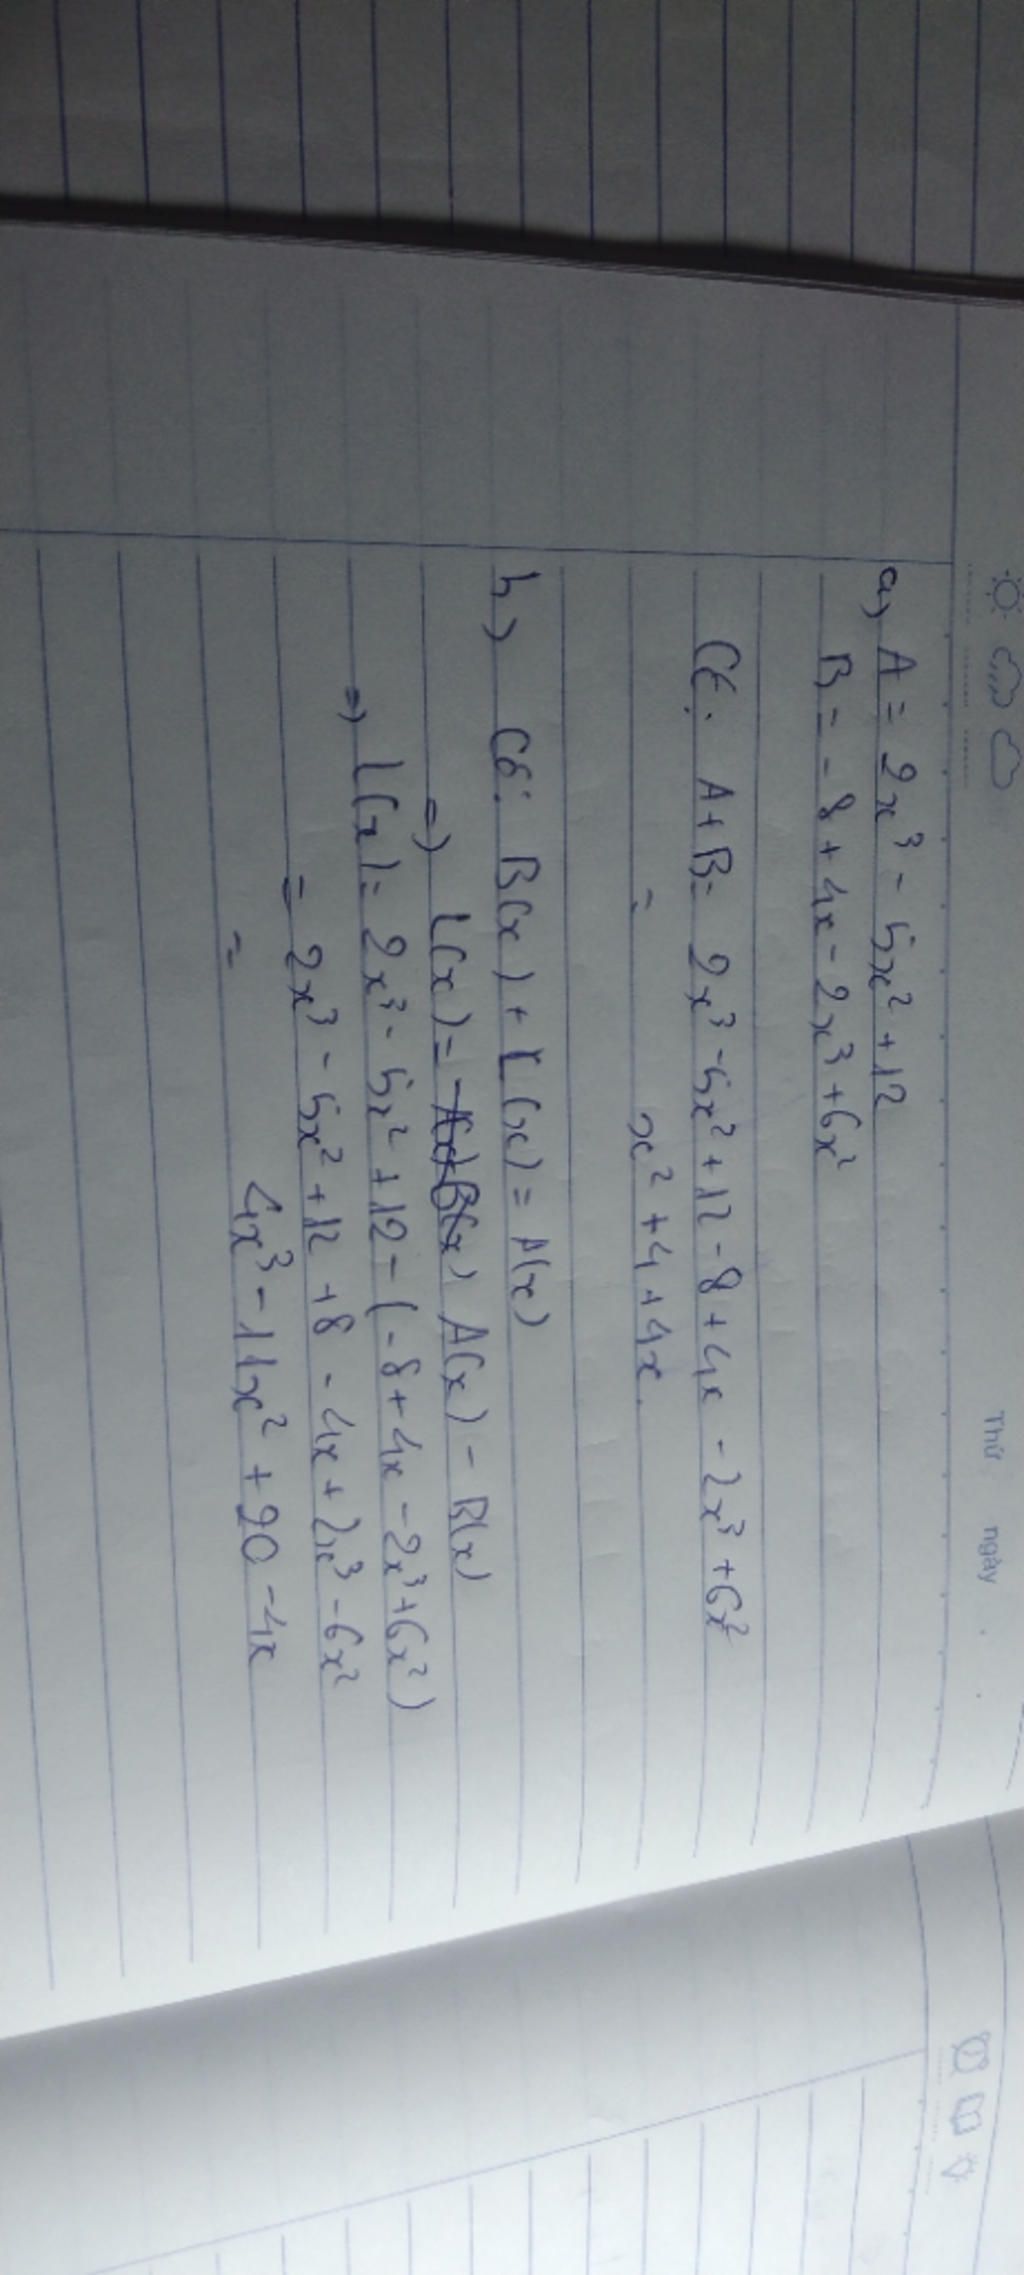 Thứ ngày
a) A = 2x³ - 5x² + 12
B = - 8 + 4x - 2x³ + 6x²
Có: A + B = 2x³ - 5x² + 12 - 8 + 4x - 2x³ + 6x²
= x² + 4 + 4x.
b) Có: B(x) + L(x) = A(x)
=> L(x) = A(x) - B(x)
=> L(x) = 2x³ - 5x² + 12 - (- 8 + 4x - 2x³ + 6x²)
= 2x³ - 5x² + 12 + 8 - 4x + 2x³ - 6x²
= 4x³ - 11x² + 20 - 4x